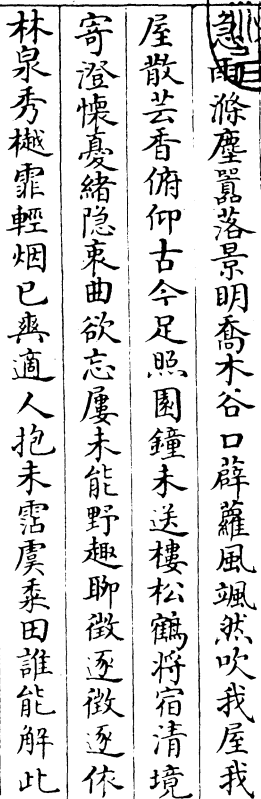 急雨滌塵囂落景明喬木谷口薜蘿風颯然吹我屋我
屋散芸香俯仰古今足照園鐘未送樓松鶴將宿清境
寄澄懷憂緒隐衷曲欲忘屢未能野趣聊徴逐徴逐依
林泉秀樾霏輕烟已爽適人抱未霑虞黍田誰能解此